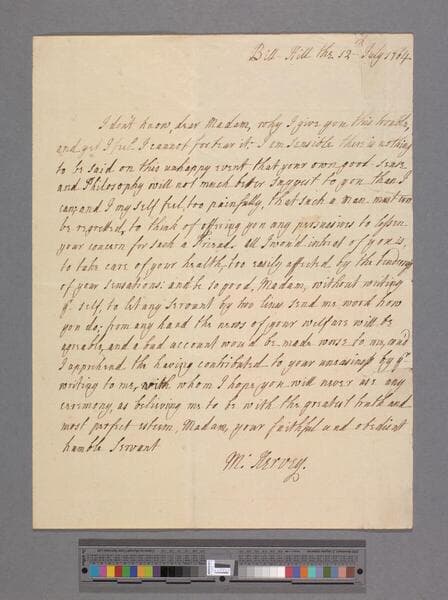 Bill-Hill the 12th July 1764
I don't know, dear Madam, why I give you this trouble,
and yet I feel I cannot forbear it; I am sensible there is nothing
to be said on this unhappy event that your own good sense
and Philosophy will not much better suggest to you than I
can; and I my self feel, too painfully, that such a man must ever
be regretted, to think of offering you any persuasives to lessen
your concern for such a friend. all I would intreat of you is,
to take care of your health, too easily affected by the tenderness
of your sensations: and be so good, Madam, without writing
yr self, to let any servant by two lines send me word how
you do; from any hand the news of your welfare will be
agreable, and a bad account would be made worse to me, and
I apprehend the having contributed to your uneasiness by yr
writing to me, with whom I hope you will never use any
ceremony, as believing me to be with the greatest truth and
most perfect esteem, Madam, your faithful and obedient
humble Servant
M: Hervey.